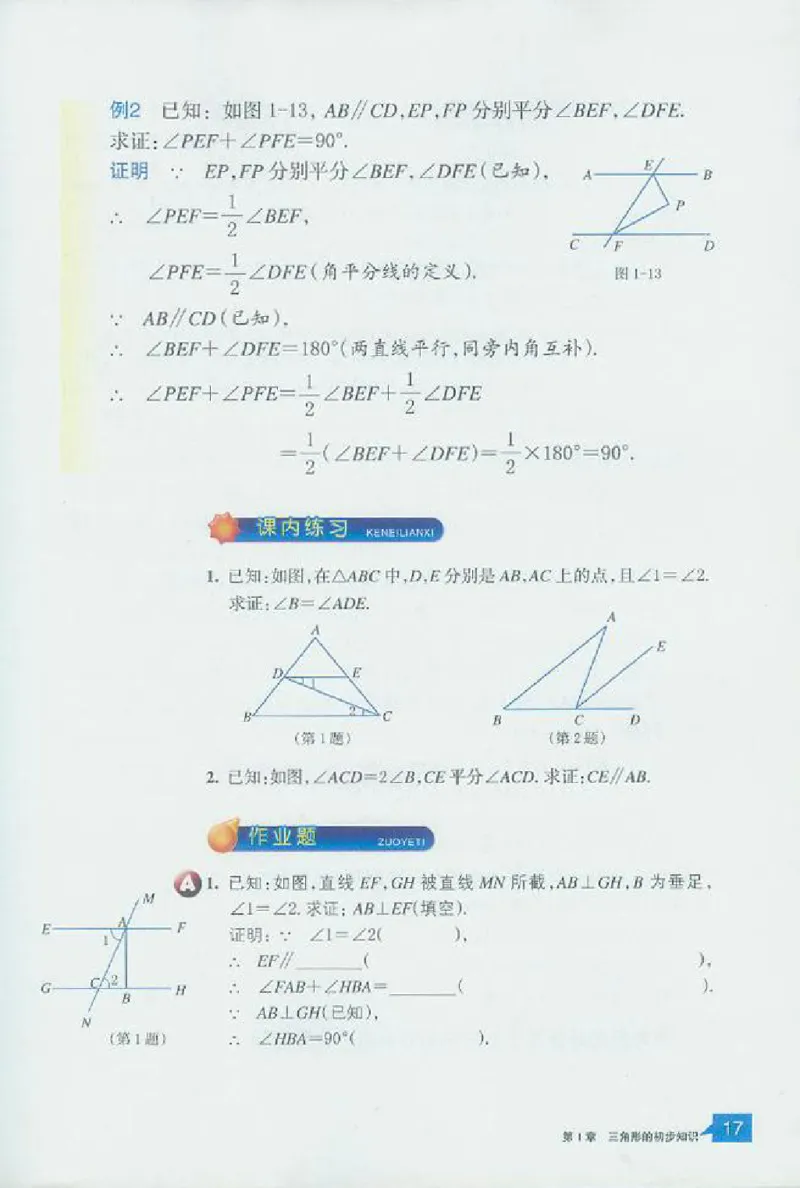 例2 已知：如图 1-13，AB∥CD，EP，FP 分别平分∠BEF，∠DFE.
求证：∠PEF＋∠PFE＝90°.
证明 ∵ EP，FP 分别平分∠BEF，∠DFE（已知），
∴ ∠PEF＝1/2∠BEF，
∠PFE＝1/2∠DFE（角平分线的定义）.
∵ AB∥CD（已知），
∴ ∠BEF＋∠DFE＝180°（两直线平行，同旁内角互补）.
∴ ∠PEF＋∠PFE＝1/2∠BEF＋1/2∠DFE
＝1/2（∠BEF＋∠DFE）＝1/2×180°＝90°.
A E B
P
C F D
图 1-13
课内练习 KENEILIANXI
1. 已知：如图，在△ABC 中，D，E 分别是 AB，AC 上的点，且∠1＝∠2.
求证：∠B＝∠ADE.
A
D E
1
B 2 C
（第 1 题）
A
E
B C D
（第 2 题）
2. 已知：如图，∠ACD＝2∠B，CE 平分∠ACD. 求证：CE∥AB.
作业题 ZUOYETI
A 1. 已知：如图，直线 EF，GH 被直线 MN 所截，AB⊥GH，B 为垂足，
∠1＝∠2. 求证：AB⊥EF（填空）.
证明：∵ ∠1＝∠2（ ），
∴ EF∥______（ ），
∴ ∠FAB＋∠HBA＝______（ ）.
∵ AB⊥GH（已知），
∴ ∠HBA＝90°（ ）.
M
E A F
1
G C 2 B H
N
（第 1 题）
第 1 章 三角形的初步知识 17